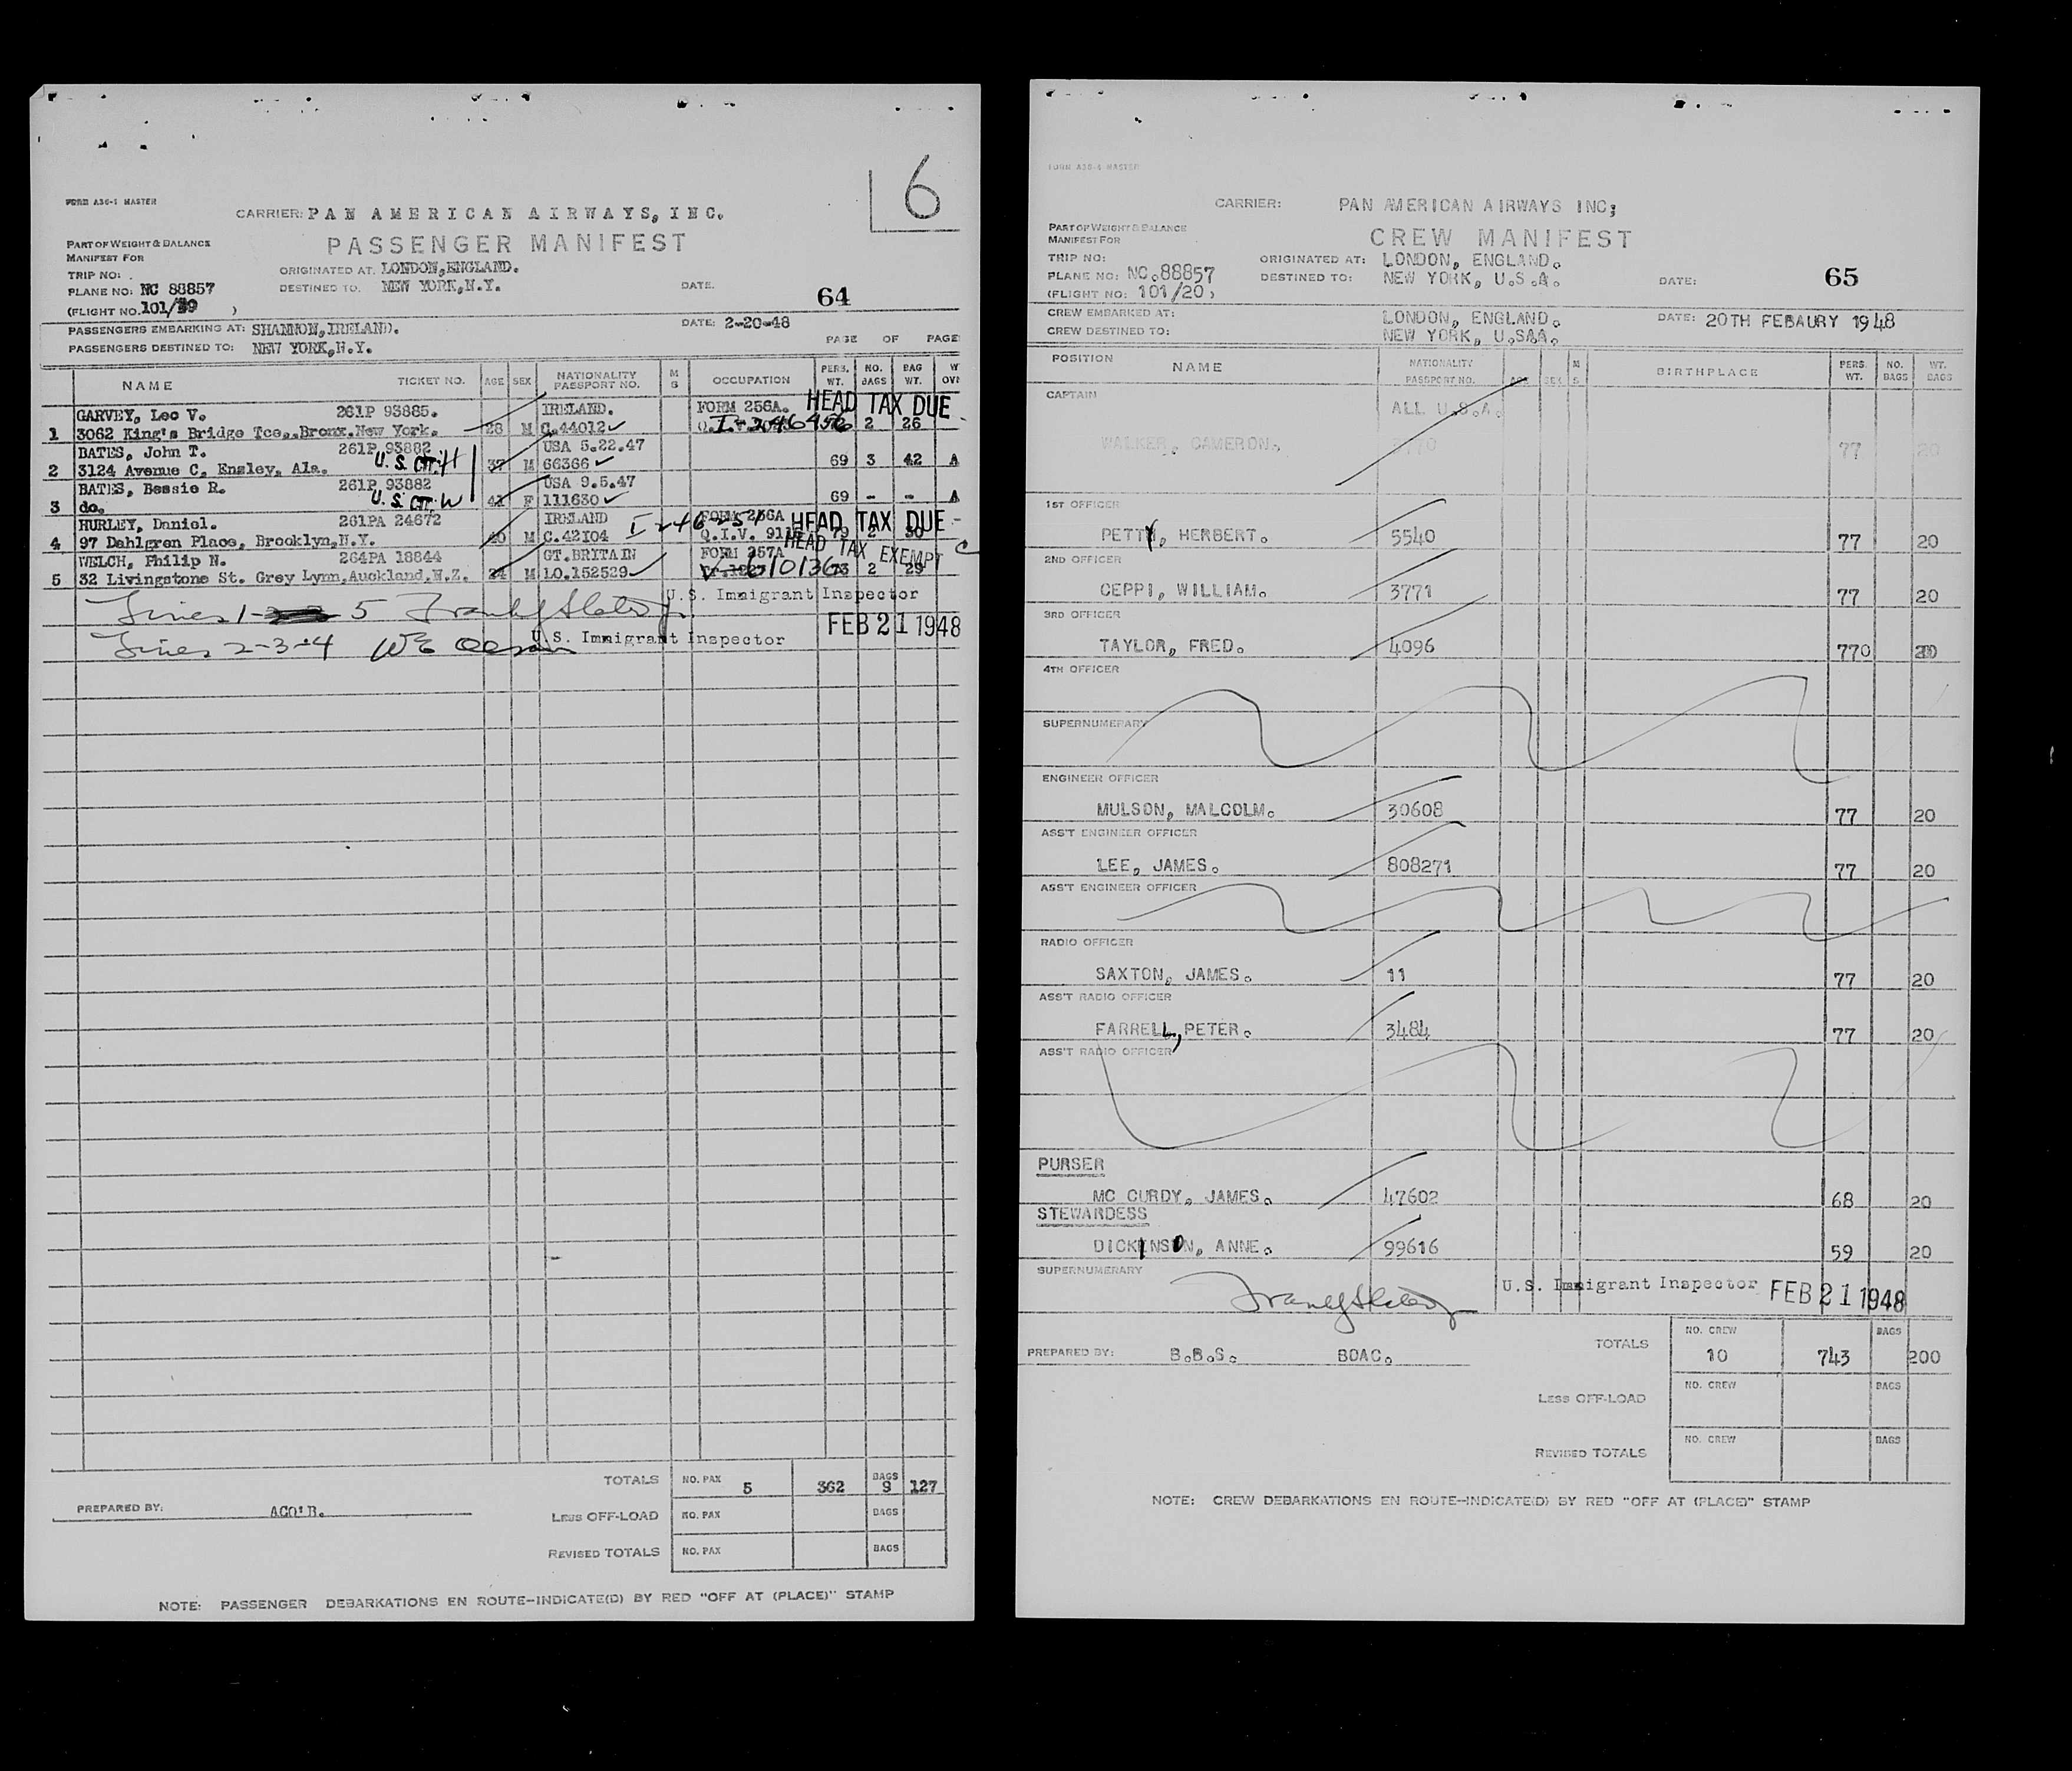 6
FORM A36-1 MASTER
CARRIER: PAN AMERICAN AIRWAYS, INC.
PART OF WEIGHT & BALANCE
MANIFEST FOR
PASSENGER MANIFEST
TRIP NO:
ORIGINATED AT. LONDON,ENGLAND.
PLANE NO: NC 88857
DESTINED TO. NEW YORK,N.Y.
DATE.
64
(FLIGHT NO. 101/ )
PASSENGERS EMBARKING AT: SHANNON,IRELAND.
DATE: 2-20-48
PASSENGERS DESTINED TO: NEW YORK,N.Y.
PAGE OF PAGE
NAME TICKET NO. AGE SEX NATIONALITY PASSPORT NO. M S OCCUPATION PERS. WT. NO. BAGS BAG WT.
GARVEY, Leo V. 261P 93885. IRELAND. FORM 256A. HEAD TAX DUE
1 3062 King's Bridge Tce,.Bronx.New York. 28 M C.44012 2 26
BATES, John T. 261P 93882 USA 5.22.47
2 3124 Avenue C, Ensley, Ala. U.S. CIT. H 37 M 66366 69 3 42 A
BATES, Bessie R. 261P 93882 USA 9.5.47
3 do. U.S. CIT. W 41 F 111630 69 - - A
HURLEY, Daniel. 261PA 24672 IRELAND FORM 256A HEAD TAX DUE -
4 97 Dahlgren Place, Brooklyn,N.Y. 40 M C.42104 Q.I.V. 79 2 30
WELCH, Philip N. 264PA 18844 GT.BRITAIN FORM 257A HEAD TAX EXEMPT
5 32 Livingstone St. Grey Lynn,Auckland,N.Z. 24 M LO.152529 73 2 29
Lines 1- 5
U.S. Immigrant Inspector
FEB 21 1948
Lines 2-3-4
U.S. Immigrant Inspector
TOTALS NO. PAX 5 362 BAGS 9 127
PREPARED BY: ACO'B.
LESS OFF-LOAD NO. PAX BAGS
REVISED TOTALS NO. PAX BAGS
NOTE: PASSENGER DEBARKATIONS EN ROUTE-INDICATE(D) BY RED "OFF AT (PLACE)" STAMP
FORM A36-1 MASTER
CARRIER: PAN AMERICAN AIRWAYS INC;
PART OF WEIGHT & BALANCE
MANIFEST FOR
CREW MANIFEST
TRIP NO:
ORIGINATED AT: LONDON, ENGLAND.
PLANE NO: NC.88857
DESTINED TO: NEW YORK, U.S.A.
DATE:
65
(FLIGHT NO: 101/20)
CREW EMBARKED AT: LONDON, ENGLAND.
DATE: 20TH FEBAURY 1948
CREW DESTINED TO: NEW YORK, U.SAA.
POSITION NAME NATIONALITY PASSPORT NO. AGE SEX M S BIRTHPLACE PERS. WT. NO. BAGS WT. BAGS
CAPTAIN ALL U.S.A.
WALKER, CAMERON. 77 20
1ST OFFICER
PETTY, HERBERT. 5540 77 20
2ND OFFICER
CEPPI, WILLIAM. 3771 77 20
3RD OFFICER
TAYLOR, FRED. 4096 770 20
4TH OFFICER
SUPERNUMERARY
ENGINEER OFFICER
MULSON, MALCOLM. 30608 77 20
ASS'T ENGINEER OFFICER
LEE, JAMES. 808271 77 20
ASS'T ENGINEER OFFICER
RADIO OFFICER
SAXTON, JAMES. 11 77 20
ASS'T RADIO OFFICER
FARRELL, PETER. 3484 77 20
ASS'T RADIO OFFICER
PURSER
MC CURDY, JAMES. 47602 68 20
STEWARDESS
DICKINSON, ANNE. 99616 59 20
SUPERNUMERARY
U.S. Immigrant Inspector FEB 21 1948
TOTALS NO. CREW 10 743 BAGS 200
PREPARED BY: B.B.S. BOAC.
LESS OFF-LOAD NO. CREW BAGS
REVISED TOTALS NO. CREW BAGS
NOTE: CREW DEBARKATIONS EN ROUTE-INDICATE(D) BY RED "OFF AT (PLACE)" STAMP